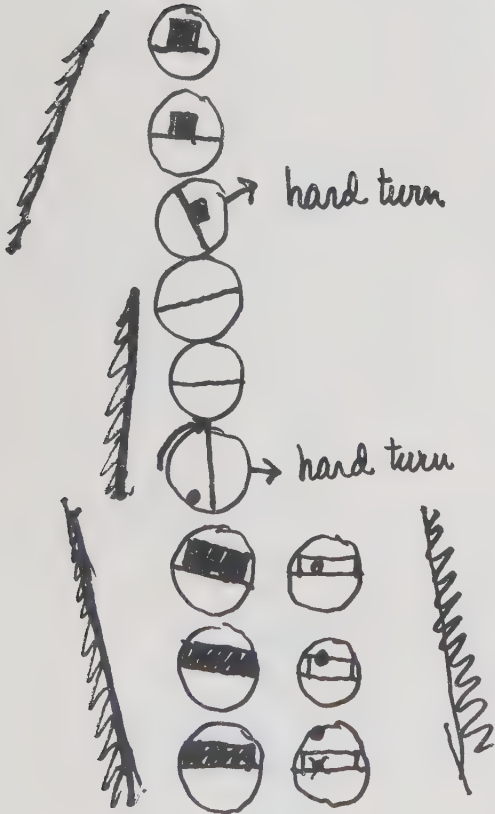 hard turn
hard turn